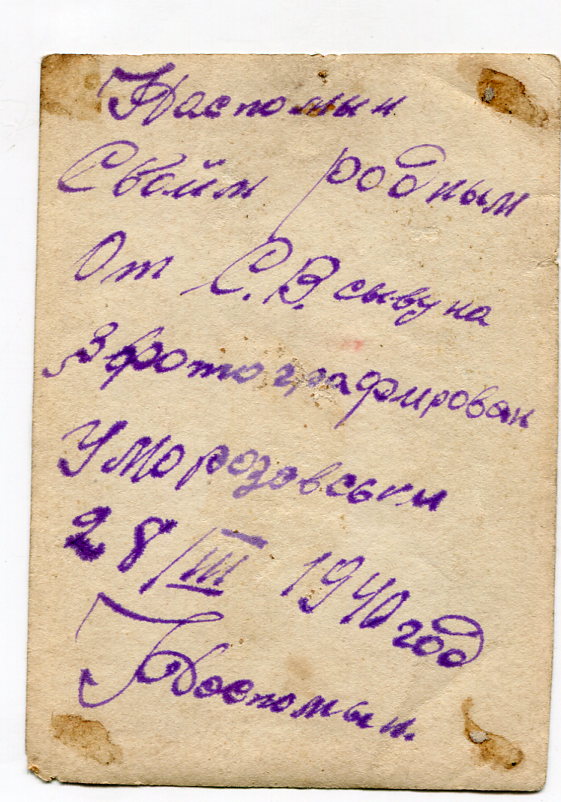 Наспомын
Свойм родным
От С.В. сывуна
Зфотографирован
У Морозовськи
28/III 1940 год
Поспомын.